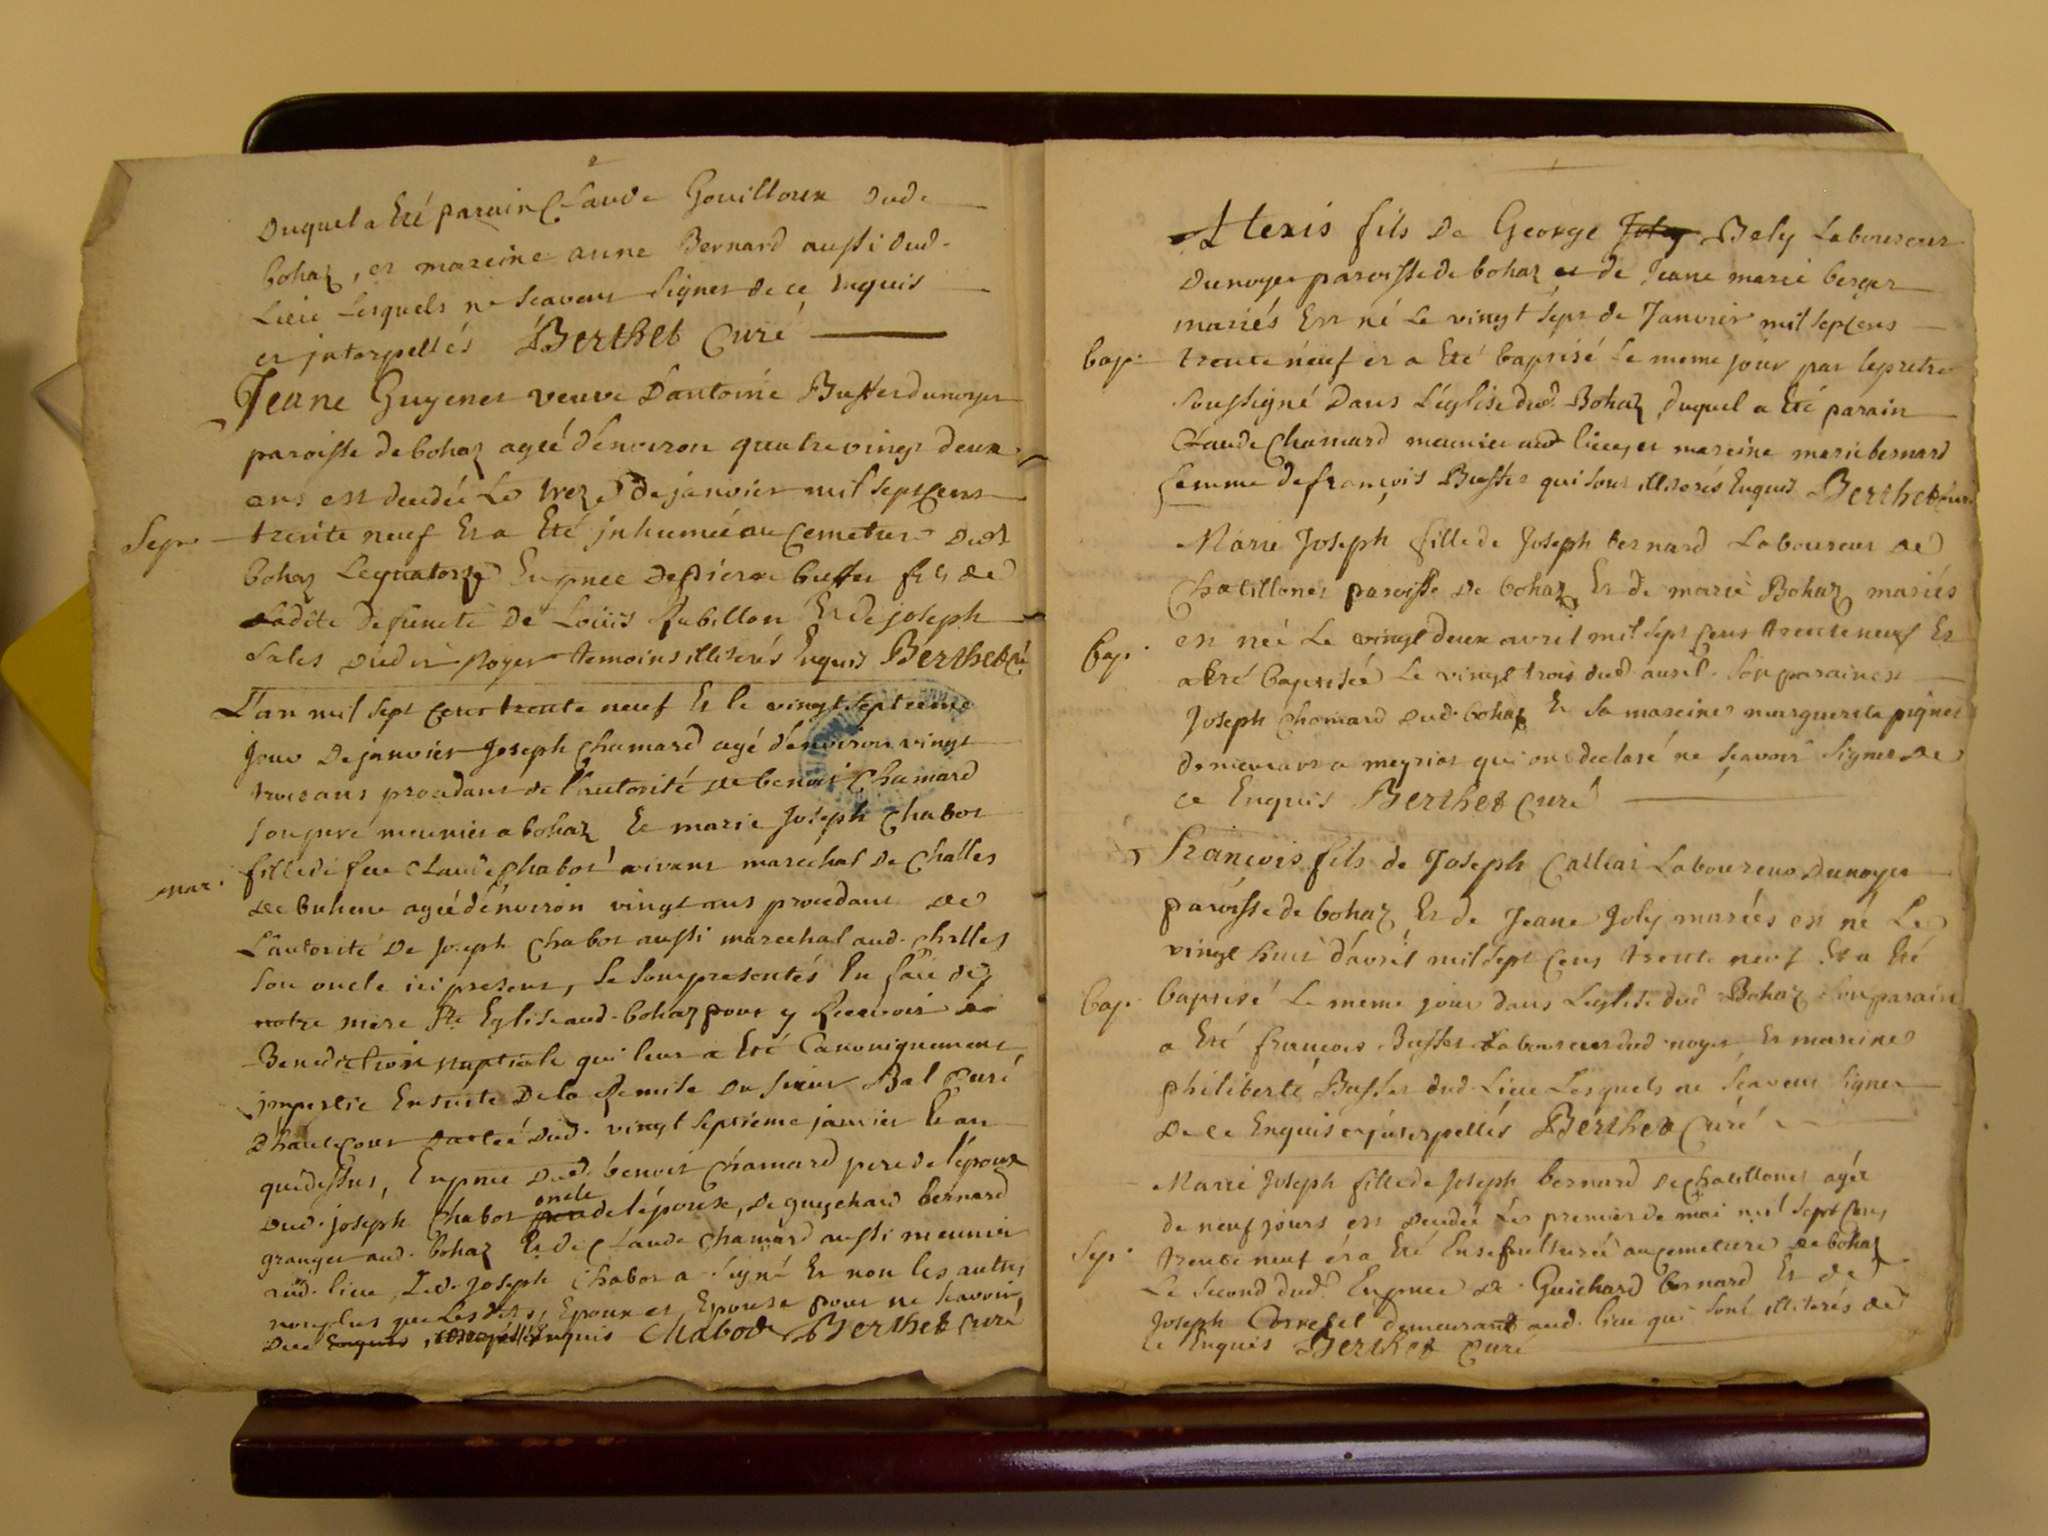 duquel a Eté parain Claude Gouilloux dud.
bohaz, et mareine anne Bernard aussi dud.
Lieu Lesquels ne scavent signer de ce Enquis
et jnterpellés Berthet Curé
Jeane Guyenet veuve D'antoine Buffet dunoyer
paroisse de bohaz ageé d'environ quatre vingt deux
ans est decedée Le treze de janvier mil sept cens
Sep. trente neuf Et a Eté jnhumée au Cemetiere dud.
bohaz Le quatorze En pnce de pierre buffet fils de
Ladite defuncte de Loüis Rubillon Et de joseph
Sales dud. noyer temoins illiterés Enquis Berthet Cé
L'an mil sept cens trente neuf Et le vingt septieme
Jour de janvier Joseph Chamard agé d'environ vingt
trois ans procedant de l'autorité de benoit Chamard
son pere meunier a bohaz Et marie Joseph Chabot
mar. fille de feu Claude Chabot vivant marechal de Challes
de buhene ageé d'environ vingt ans procedant de
L'autorité de Joseph Chabot aussi marechal aud. Challes
son oncle ici present, se sont presentés En face de
notre mere Ste Eglise aud. bohaz pour y Recevoir la
Benediction nuptiale qui leur a Eté Canoniquement
jmpartie Ensuite de la Remise du sieur Bal Curé
d'hautecour dattée dud. vingt septieme janvier l'an
que dessus, En pnce dud. benoit Chamard pere de l'epoux
oncle
dud. joseph Chabot pere de l'epouse, de guychard bernard
granger aud. bohaz Et de Claude Chamard aussi meunier
aud. lieu, Led. Joseph Chabot a signé Et non les autres
non plus que Lesdits Epoux et Epouse pour ne scavoir
De ce Enquis Enquis Chabod Berthet Curé
Alexis fils de George Joly Bely Laboureur
Dunoyer paroisse de bohaz et de Jeane marie berger
mariés Est né Le vingt sept de Janvier mil sept cens
bap. trente neuf et a Eté baptisé Le meme jour par le pretre
soussigné Dans L'église dud. Bohaz, duquel a Eté parain
Claude Chamard meunier aud. lieu, et mareine marie bernard
femme de françois Buffet qui sont illiterés Enquis Berthet curé
Marie Joseph fille de Joseph bernard Laboureur de
Chatillonet paroisse de bohaz Et de marie Bohaz mariés
est née Le vingt deux avril mil sept cens trente neuf Et
bap. a Eté baptisée Le vingt trois dud. avril. son parain est
Joseph Chamard dud. bohaz Et sa mareine marguerite pignet
demeurant a meyriat qui ont declaré ne scavoir signer de
ce Enquis Berthet Curé
François fils de Joseph Calliat Laboureur dunoyer
paroisse de bohaz Et de Jeane Joly mariés est né Le
vingt huit d'avril mil sept cens trente neuf Et a Eté
bap. baptisé Le meme jour dans L'eglise dud. Bohaz son parain
a Eté françois Buffet Laboureur dud. noyer Et mareine
philiberte Buffet dud. Lieu Lesquels ne scavent signer
de ce Enquis et jnterpellés Berthet Curé
Marie Joseph fille de Joseph bernard de Chatillonet agée
de neuf jours est decedée Le premier de mai mil sept cens
Sep. trente neuf et a Eté Ensepulturée au cemetiere de bohaz
Le second dud. En pnce de Guichard bernard Et de
Joseph demeurant aud. lieu qui sont illiterés de
ce Enquis Berthet Curé